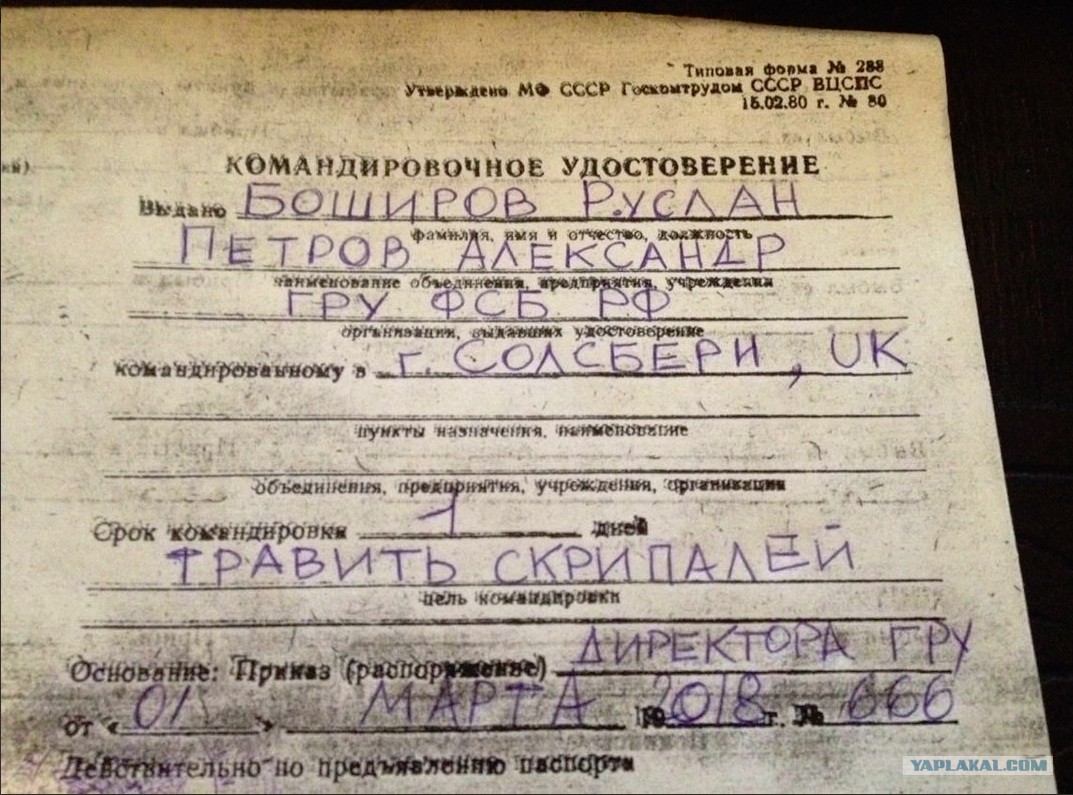 Типовая форма № 288
Утверждено МФ СССР Госкомтрудом СССР ВЦСПС
15.02.80 г. № 80
КОМАНДИРОВОЧНОЕ УДОСТОВЕРЕНИЕ
Выдано БОШИРОВ РУСЛАН
фамилия, имя и отчество, должность
ПЕТРОВ АЛЕКСАНДР
наименование объединения, предприятия, учреждения
ГРУ ФСБ РФ
организации, выдавших удостоверение
командированному в г. СОЛСБЕРИ, UK
пункты назначения, наименование
объединения, предприятия, учреждения, организации
Срок командировки 1 дней
ТРАВИТЬ СКРИПАЛЕЙ
цель командировки
Основание: Приказ (распоряжение) ДИРЕКТОРА ГРУ
от « 01 » МАРТА 2018 г. № 666
Действительно по предъявлению паспорта
YAPLAKAL.COM